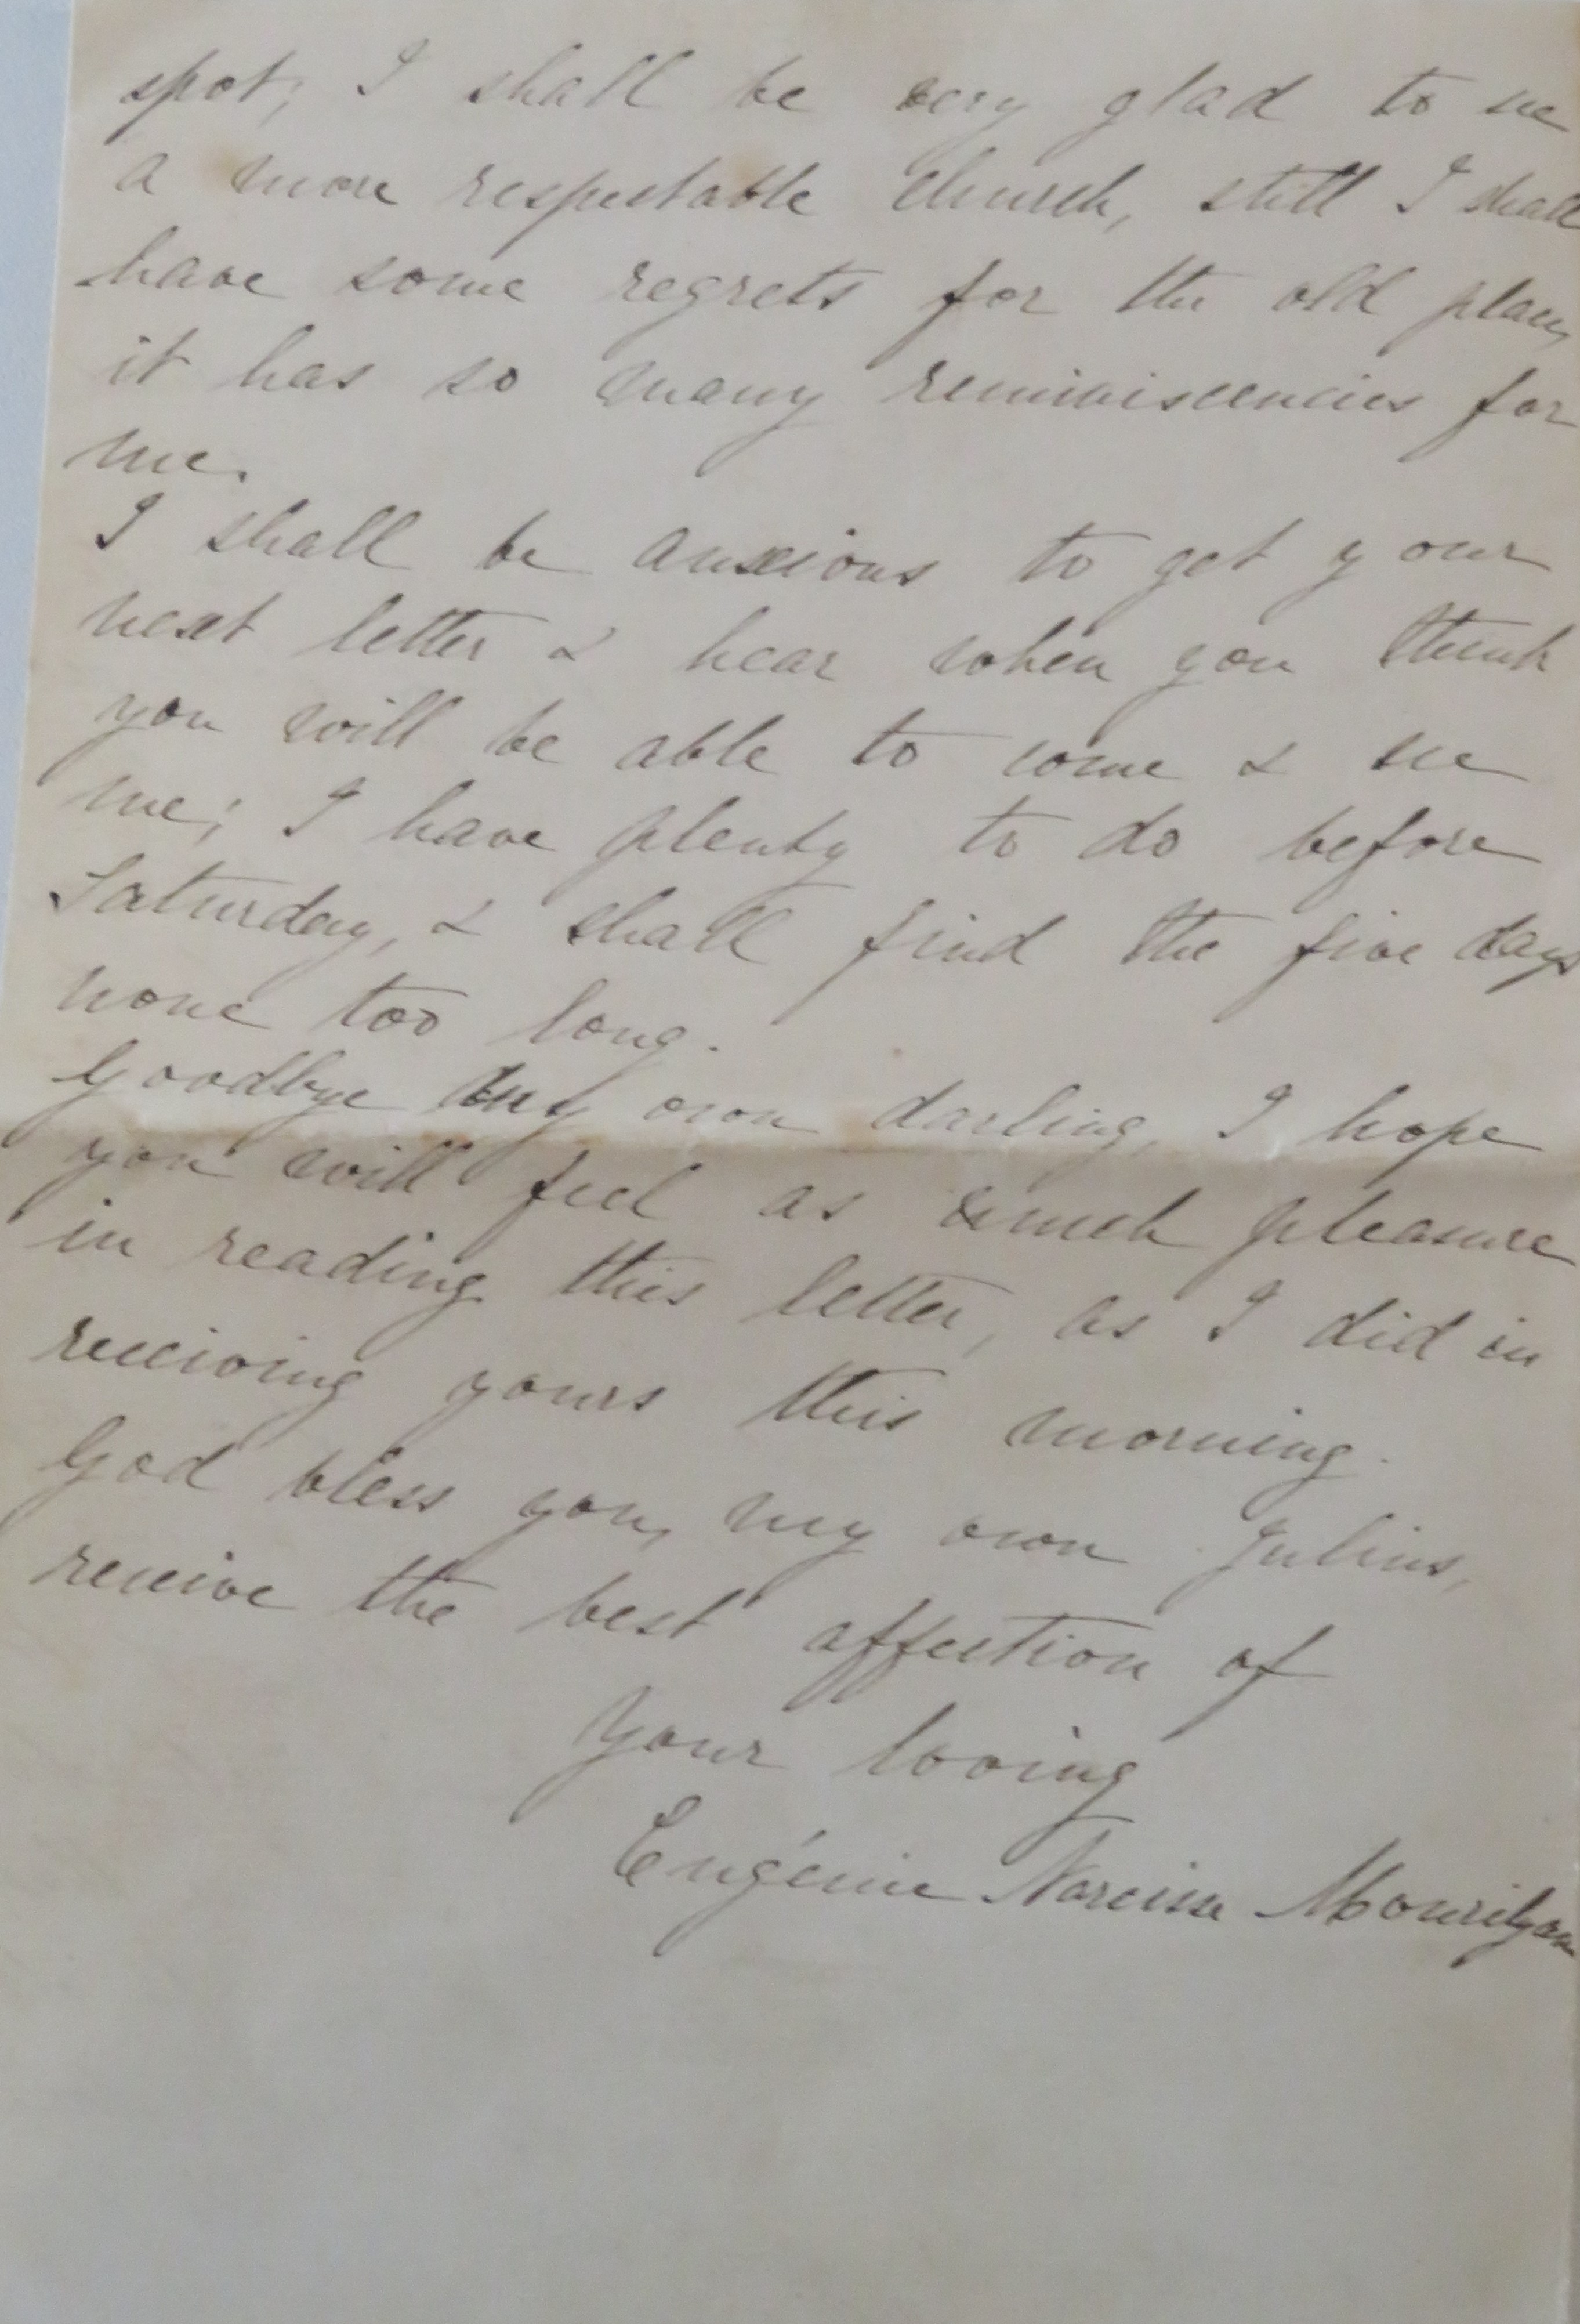 spot; I shall be very glad to see
a more respectable church, still I shall
have some regrets for the old place,
it has so many reminiscencies for
me.
I shall be anxious to get your
next letter & hear when you think
you will be able to come & see
me; I have plenty to do before
Saturday, & shall find the five days
none too long.
Goodbye my own darling, I hope
you will feel as much pleasure
in reading this letter, as I did in
receiving yours this morning.
God bless you, my own Julius,
receive the best affection of
Your loving
Eugénie Narcisse Mourilyan